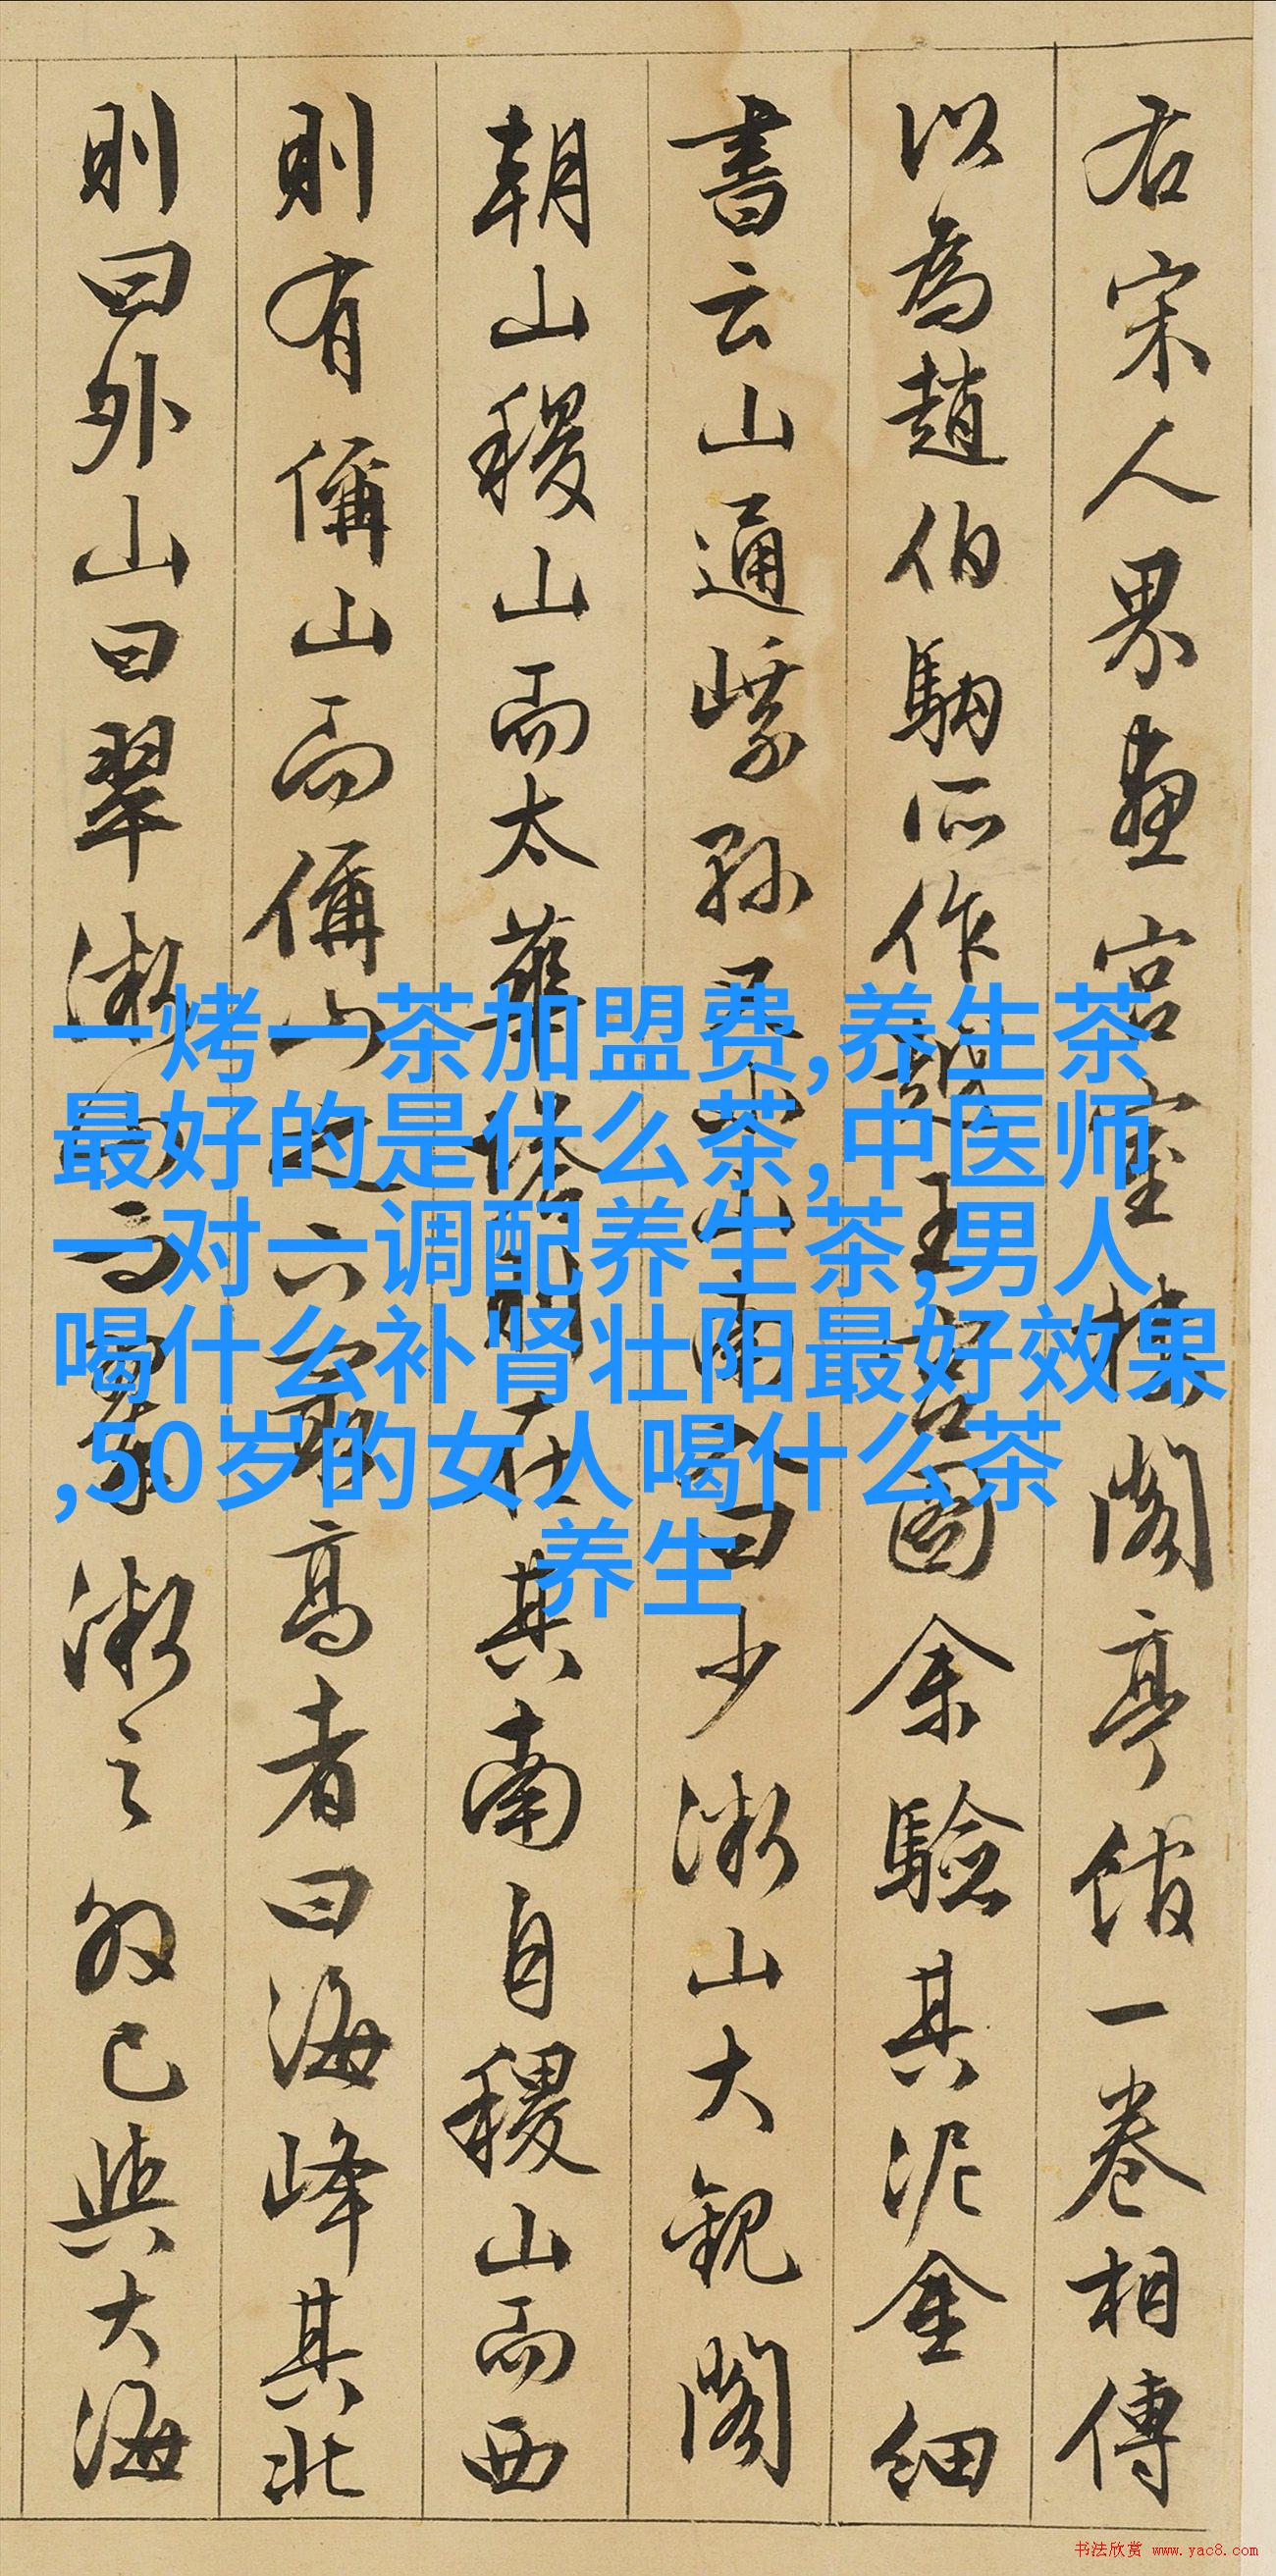 右宋人界畫宮室樓閣亭館一卷相傳
以為趙伯駒所作越王宮圖余驗其泥金細
書云山通
山南入曰少微山大觀閣
朝山稷山而太華
在其南自稷山而西
則有偁山而偁山之六
高者曰海峰其北
則曰外山曰翠微
微之外已與大海
一烤一茶加盟费,养生茶
最好的是什么茶,中医师
一对一调配养生茶,男人
喝什么补肾壮阳最好效果
,50岁的女人喝什么茶
养生
书法欣赏 www.yac8.com